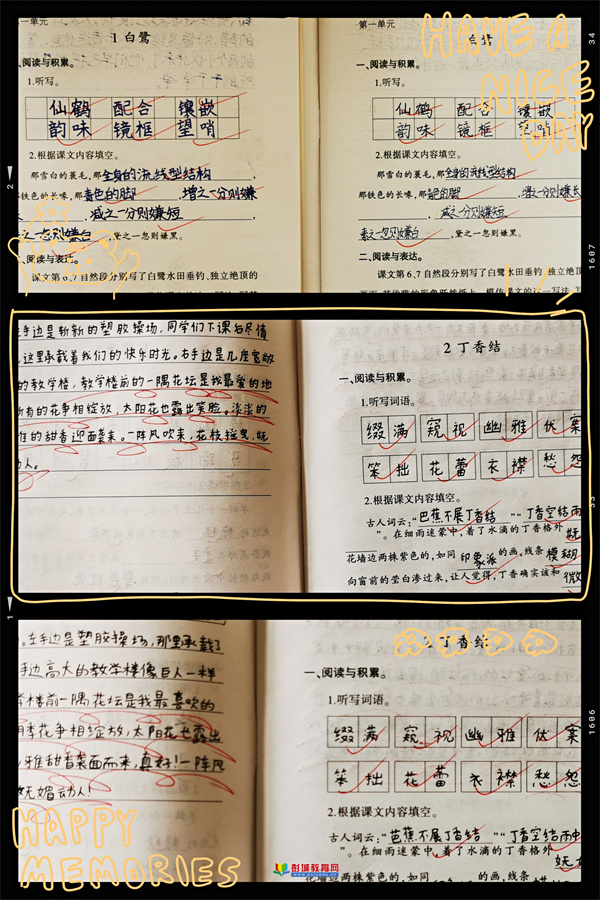 HAVE A
NICE
DAY
1 白鹭
一、阅读与积累。
1.听写。
仙鹤 配合 镶嵌
韵味 镜框 望哨
2.根据课文内容填空。
那雪白的蓑毛，那全身的流线型结构
那铁色的长喙，那青色的脚，增之一分则嫌
，减之一分则嫌短，
之一忽则嫌白，黛之一忽则嫌黑。
二、阅读与表达。
课文第6、7自然段分别写了白鹭水田垂钓、独立绝顶的
第一单元
白鹭
一、阅读与积累。
1.听写。
仙鹤 配合 镶嵌
韵味 镜框 望哨
2.根据课文内容填空。
那雪白的蓑毛，那全身的流线型结构
那铁色的长喙，那青色的脚，增一分则嫌长
，减之一分则嫌短，
素之一忽则嫌白，黛之一忽则嫌黑。
二、阅读与表达。
课文第6、7自然段分别写了白鹭水田垂钓、独立绝顶的
34
2
1607
手边是崭新的塑胶操场，同学们下课后尽情
，这里承载着我们的快乐时光。右手边是几座宽敞
的教学楼，教学楼前的一隅花坛是我最爱的地
所有的花争相绽放，太阳花也露出笑脸。淡淡的
雅的甜香迎面袭来。一阵风吹来，花枝摇曳，妩
动人。
2 丁香结
一、阅读与积累。
1.听写词语。
缀满 窥视 幽雅 伏案
笨拙 花蕾 衣襟 愁怨
2.根据课文内容填空。
古人词云：“芭蕉不展丁香结”“丁香空结雨
”。在细雨迷蒙中，着了水滴的丁香格外妩
花墙边两株紫色的，如同印象派的画，线条模糊
向窗前的莹白渗过来，让人觉得，丁香确实该和微
33
1
1606
。左手边是塑胶操场，那里承载了
手边高大的教学楼像巨人一样
学楼前一隅花坛是我最喜欢的
季花争相绽放，太阳花也露出
雅甜香袭面而来，真好！一阵风
妩媚动人！
2 丁香结
一、阅读与积累。
1.听写词语。
缀满 窥视 幽雅 伏案
笨拙 花蕾 衣襟 愁怨
2.根据课文内容填空。
古人词云：“芭蕉不展丁香结”“丁香空结雨中
”。在细雨迷蒙中，着了水滴的丁香格外妩
花墙边两株紫色的，如同 的画，线条
HAPPY
MEMORIES
彭城教育网